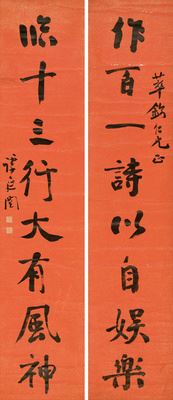 作百一詩以自娛樂
萃欽仁兄正
臨十三行大有風神
譚延闓